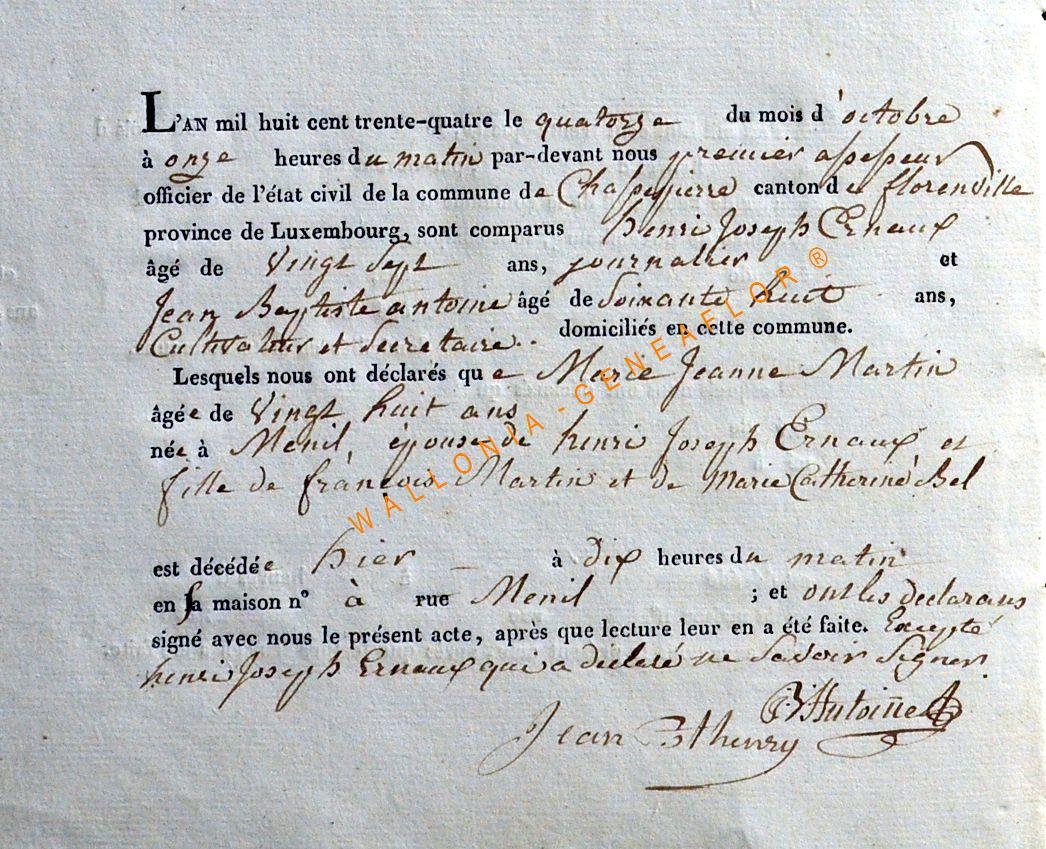 L'AN mil huit cent trente-quatre le quatorze du mois d'octobre
à onze heures du matin par-devant nous premier assesseur
officier de l'état civil de la commune de Chassepierre canton de florenville
province de Luxembourg, sont comparus henri Joseph Ernaux
âgé de Vingt Sept ans, journalier et
Jean Baptiste antoine âgé de Soixante huit ans,
Cultivateur et Secretaire.. domiciliés en cette commune.
Lesquels nous ont déclarés que Marie Jeanne Martin
âgée de Vingt huit ans
née à Menil, épouse de henri Joseph Ernaux et
fille de françois Martin et de Marie Catherine Bel
est décédée hier à dix heures du matin
en sa maison n° à rue Menil ; et ont les declarans
signé avec nous le présent acte, après que lecture leur en a été faite. Excepté
henri Joseph Ernaux qui a declaré ne Savoir Signer
JBAntoine
Jean Bt henry
WALLONIA-GENEAFLOR®